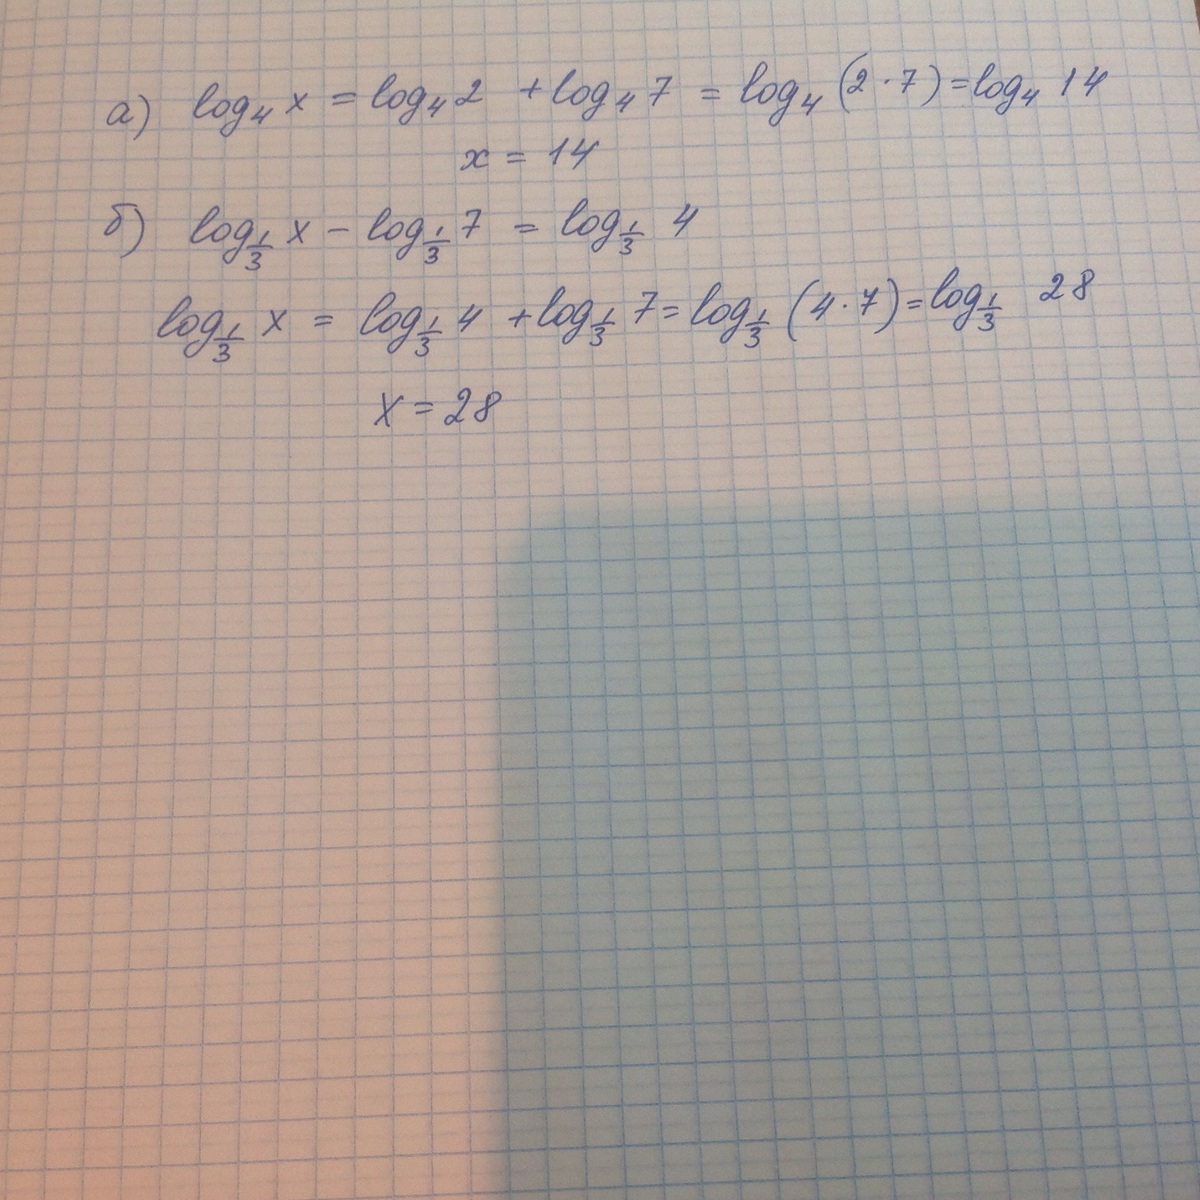 а) log₄ x = log₄ 2 + log₄ 7 = log₄ (2 · 7) = log₄ 14
x = 14
б) log_{1/3} x − log_{1/3} 7 = log_{1/3} 4
log_{1/3} x = log_{1/3} 4 + log_{1/3} 7 = log_{1/3} (4 · 7) = log_{1/3} 28
x = 28